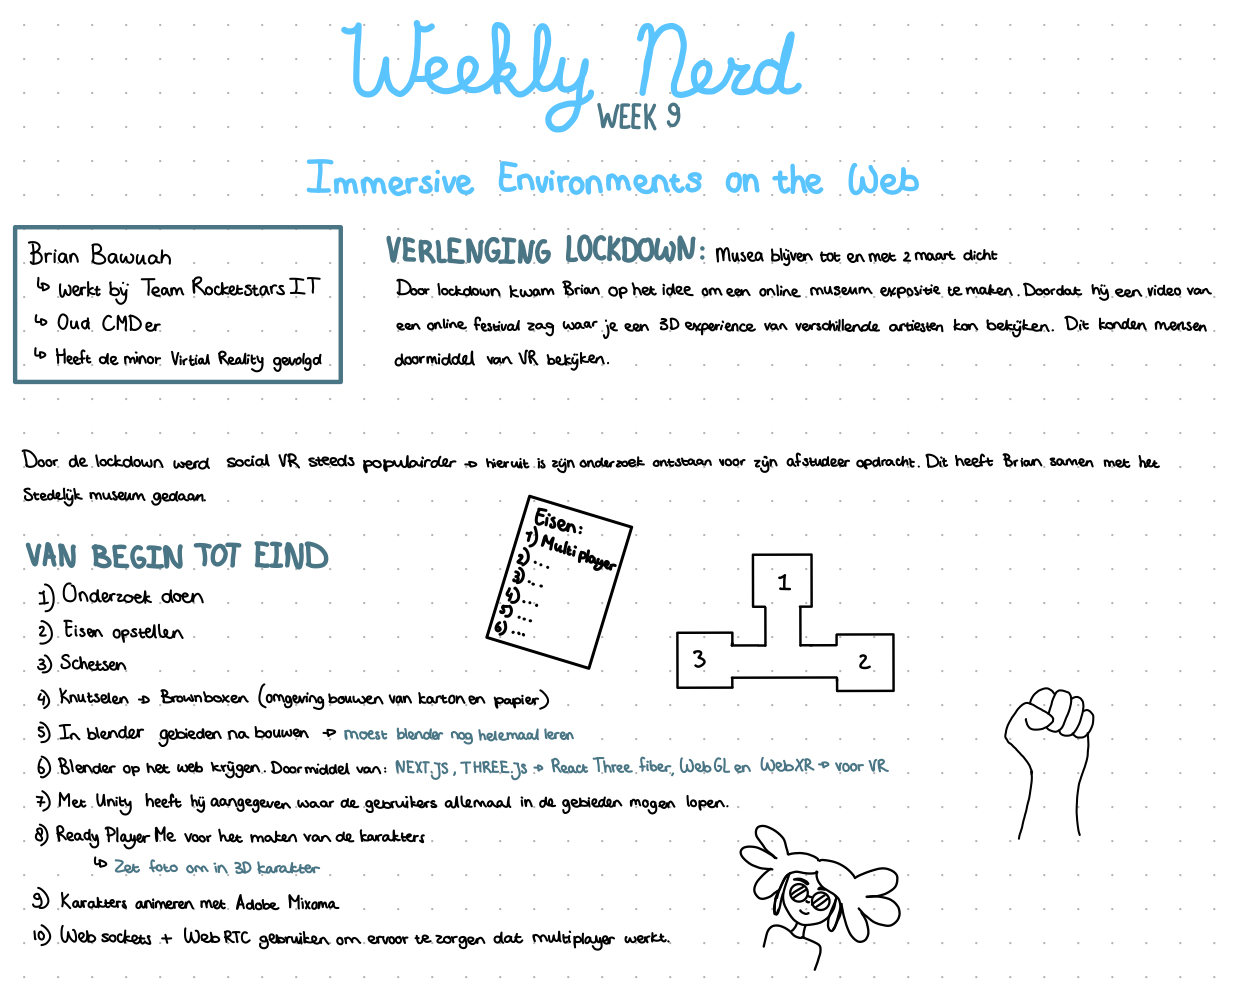 Weekly Nerd
WEEK 9
Immersive Environments on the Web
Brian Bawuah
↳ Werkt bij Team Rocketstars IT
↳ Oud CMDer
↳ Heeft de minor Virtial Reality gevolgd
VERLENGING LOCKDOWN: Musea blijven tot en met 2 maart dicht
Door lockdown kwam Brian op het idee om een online museum expositie te maken. Doordat hij een video van
een online festival zag waar je een 3D experience van verschillende artiesten kon bekijken. Dit konden mensen
doormiddel van VR bekijken.
Door de lockdown werd social VR steeds populairder → hieruit is zijn onderzoek ontstaan voor zijn afstudeer opdracht. Dit heeft Brian samen met het
Stedelijk museum gedaan.
VAN BEGIN TOT EIND
1) Onderzoek doen
2) Eisen opstellen
3) Schetsen
4) Knutselen → Brownboxen (omgeving bouwen van karton en papier)
5) In blender gebieden na bouwen → moest blender nog helemaal leren
6) Blender op het web krijgen. Doormiddel van: NEXT.JS, THREE.js → React Three fiber, WebGL en WebXR → voor VR
7) Met Unity heeft hij aangegeven waar de gebruikers allemaal in de gebieden mogen lopen.
8) Ready Player Me voor het maken van de karakters
↳ Zet foto om in 3D karakter
9) Karakters animeren met Adobe Mixama
10) Web sockets + WebRTC gebruiken om ervoor te zorgen dat multiplayer werkt.
Eisen:
1) Multiplayer
2) ...
3) ...
4) ...
5) ...
6) ...
1
3
2